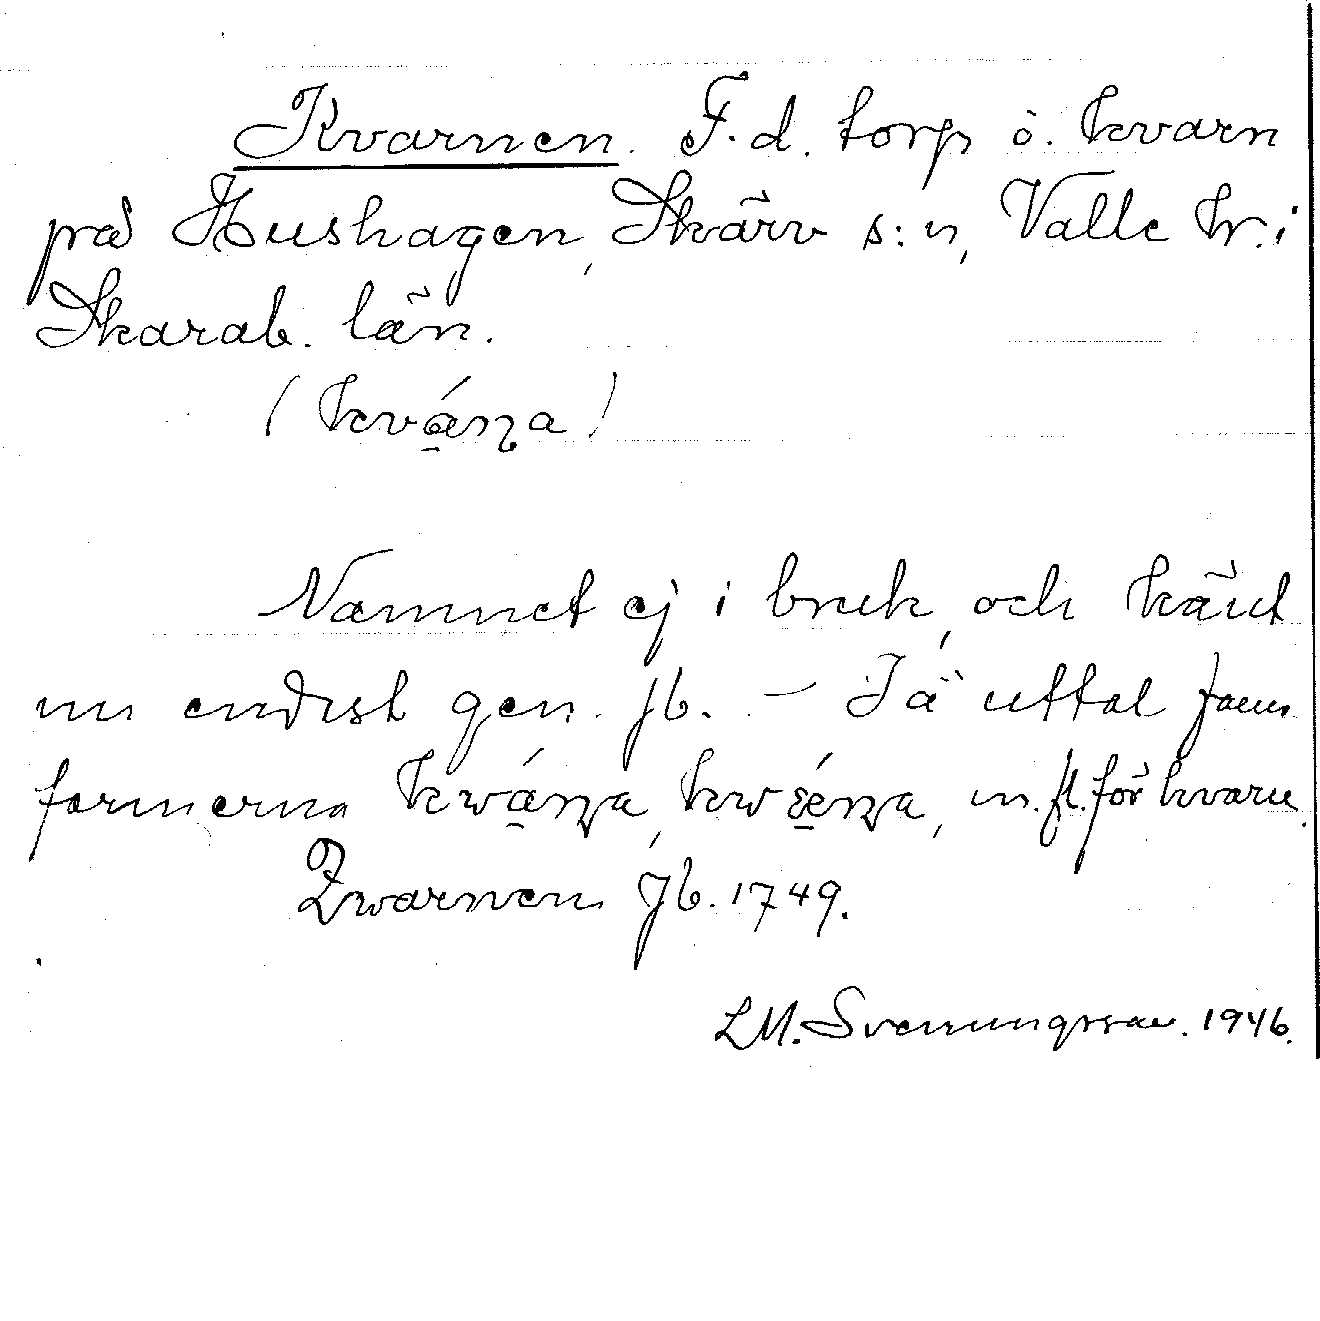 Kvarnen. F. d. torp o. kvarn
på Hushagen, Skärv s:n, Valle hr. i
Skarab. län.
(kvánna)
Namnet ej i bruk, och känt
nu endast gen. jb. – Jä uttal jäm
formerna kwánna, kwǽnna, m. fl. för kvarn.
Qwarnen Jb. 1749.
L M. Svenungsson. 1946.